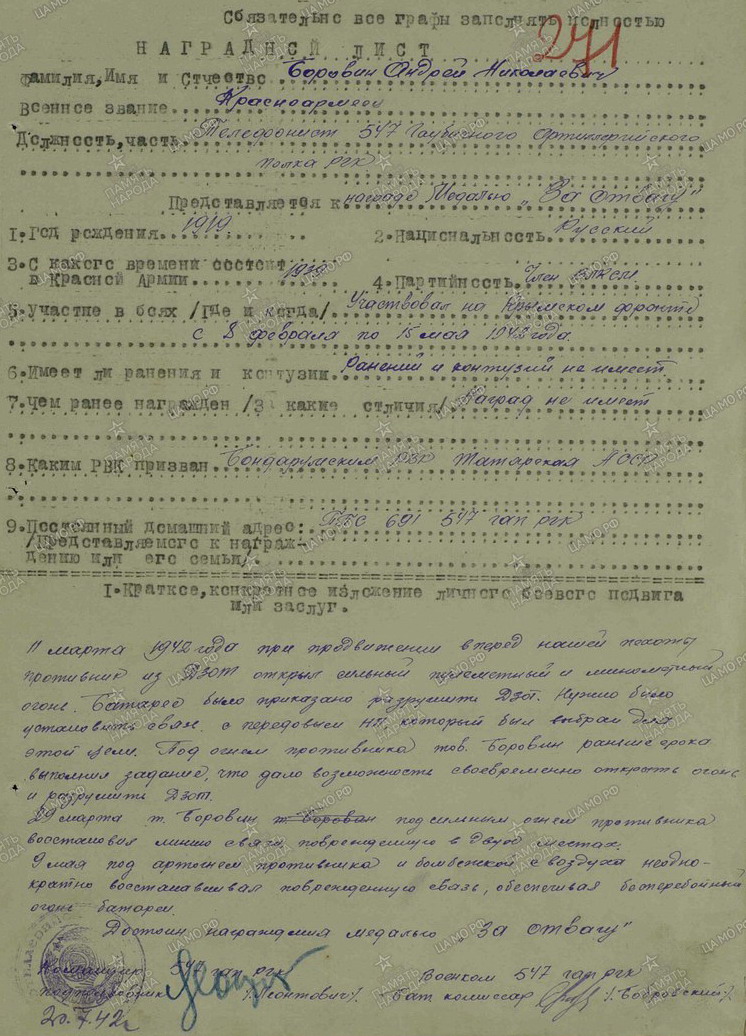 Обязательно все графы заполнять полностью
271
НАГРАДНОЙ ЛИСТ
Фамилия, Имя и Отчество Боровин Андрей Николаевич
Военное звание Красноармеец
Должность, часть Телефонист 547 Гаубичного Артиллерийского
полка РГК
Представляется к награде Медалью „За отвагу"
1. Год рождения 1919 2. Национальность Русский
3. С какого времени состоит
в Красной Армии 1939 4. Партийность Член ВЛКСМ
5. Участие в боях /Где и когда/ Участвовал на Крымском фронте
с 8 февраля по 15 мая 1942 года.
6. Имеет ли ранения и контузии Ранений и контузий не имеет
7. Чем ранее награжден /За какие отличия/ Наград не имеет
8. Каким РВК призван Бондарумским РВК Татарская АССР
9. Постоянный домашний адрес: ППС 691 547 гап ргк
/Представляемого к награж-
дению или его семьи/
I. Краткое, конкретное изложение личного боевого подвига
или заслуг.
11 марта 1942 года при продвижении вперед нашей пехоты
противник из Дзот открыл сильный пулеметный и минометный
огонь. Батарее было приказано разрушить Дзот. Нужно было
установить связь с передовым НП который был выбран для
этой цели. Под огнем противника тов. Боровин раньше срока
выполнил задание, что дало возможность своевременно открыть огонь
и разрушить Дзот.
29 марта т. Боровин т. Боровин под сильным огнем противника
восстановил линию связи поврежденную в двух местах.
9 мая под артогнем противника и бомбежкой с воздуха неодно-
кратно восстанавливал поврежденную связь, обеспечивая бесперебойный
огонь батареи.
Достоин награждения медалью „За отвагу"
Командир 547 гап ргк Военком 547 гап ргк
подполковник /Леонтович/. Бат. комиссар /Бобровский/.
20.V.42г
ПАМЯТЬ НАРОДА
ЦАМО.РФ